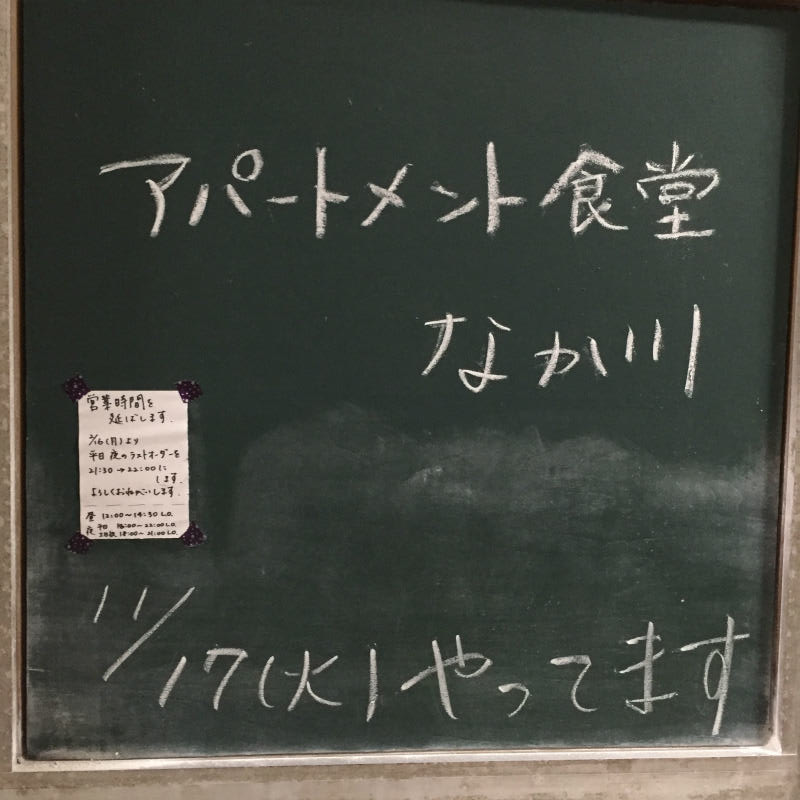 アパートメント食堂
なか川
営業時間を
延ばします.
2/16(月)より
平日 夜のラストオーダーを
21:30→22:00に
します.
よろしくおねがいします.
昼 12:00~14:30 L.O.
夜 平日 18:00~22:00 L.O.
土日祝 18:00~21:00 L.O.
11/17(火)やってます